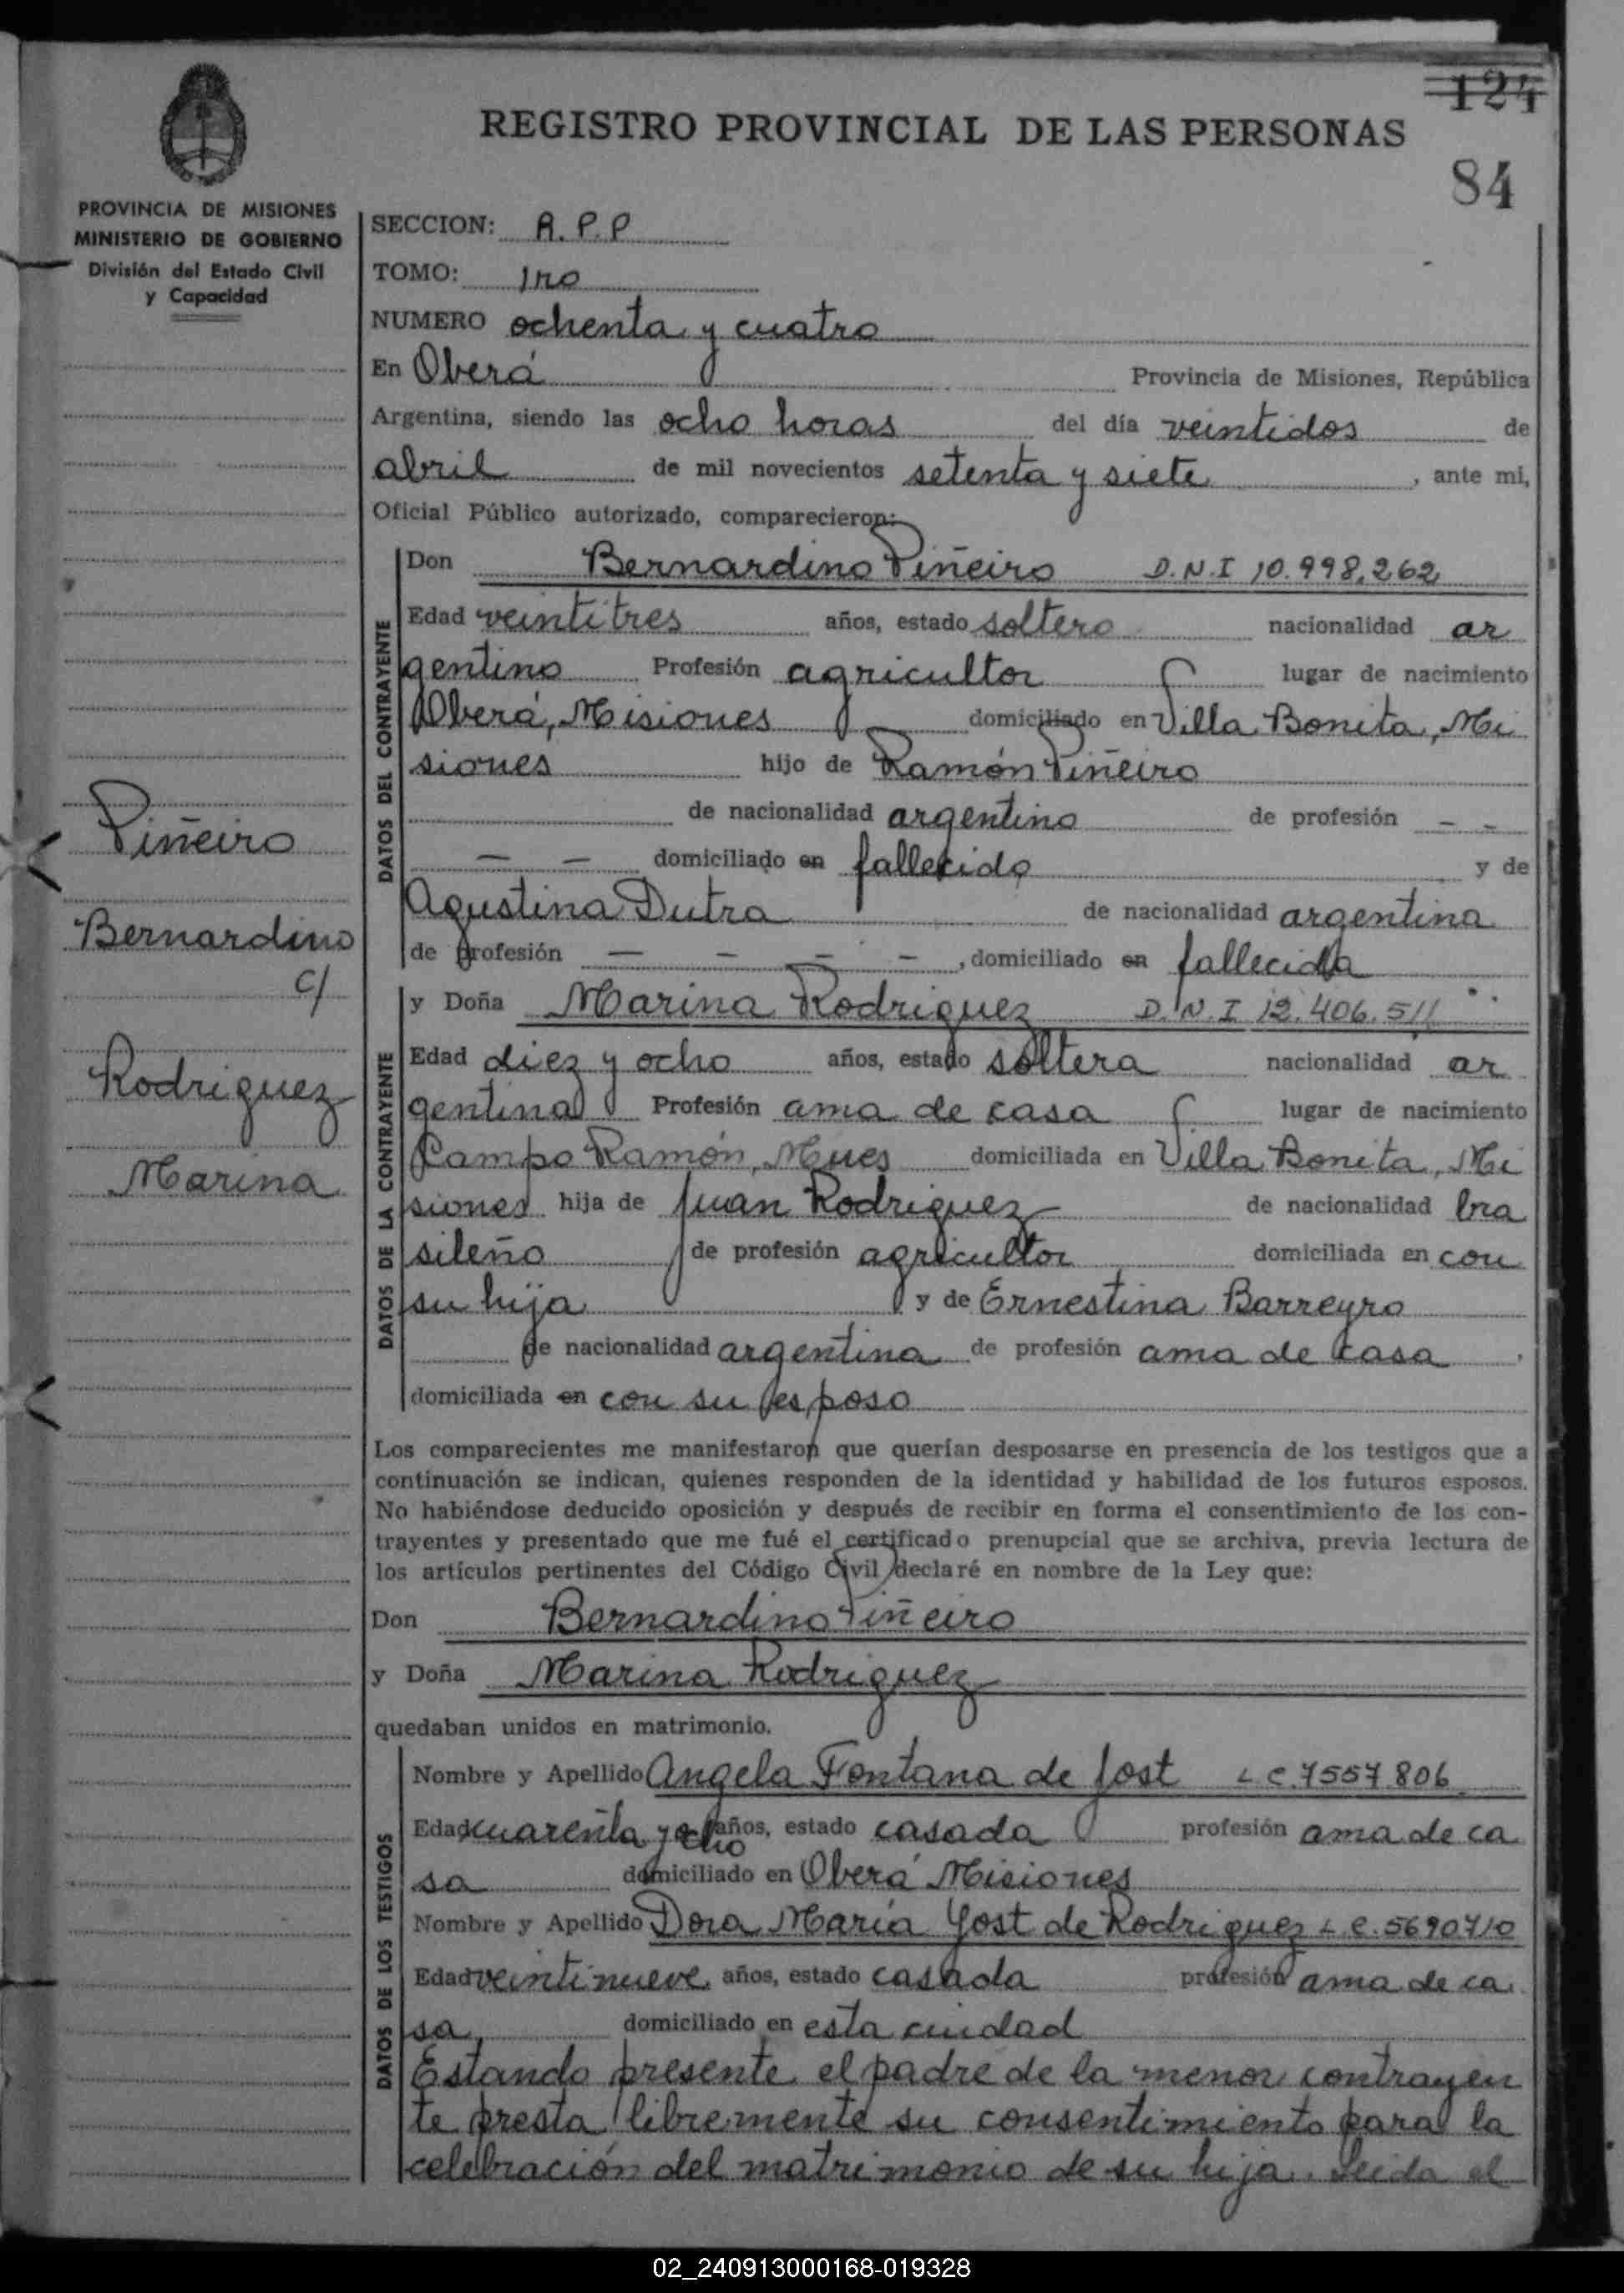 124
REGISTRO PROVINCIAL DE LAS PERSONAS
84
PROVINCIA DE MISIONES
MINISTERIO DE GOBIERNO
División del Estado Civil
y Capacidad
SECCION: A.P.P
TOMO: 1ro
NUMERO ochenta y cuatro
En Oberá Provincia de Misiones, República
Argentina, siendo las ocho horas del día veintidos de
abril de mil novecientos setenta y siete, ante mi,
Oficial Público autorizado, comparecieron:
DATOS DEL CONTRAYENTE
Don Bernardino Piñeiro D.N.I 10.998.262
Edad veintitres años, estado soltero nacionalidad ar
gentino Profesión agricultor lugar de nacimiento
Oberá, Misiones domiciliado en Villa Bonita, Mi
siones hijo de Ramón Piñeiro
de nacionalidad argentino de profesión - -
- - domiciliado en fallecido y de
Agustina Dutra de nacionalidad argentina
de profesión - - - -, domiciliado en fallecida
Piñeiro
Bernardino
c/
Rodriguez
Marina
DATOS DE LA CONTRAYENTE
y Doña Marina Rodriguez D.N.I 12.406.511
Edad diez y ocho años, estado soltera nacionalidad ar
gentina Profesión ama de casa lugar de nacimiento
Campo Ramón, Mnes domiciliada en Villa Bonita, Mi
siones hija de Juan Rodriguez de nacionalidad bra
sileño de profesión agricultor domiciliada en con
su hija y de Ernestina Barreyro
de nacionalidad argentina de profesión ama de casa
domiciliada en con su esposo
Los comparecientes me manifestaron que querían desposarse en presencia de los testigos que a
continuación se indican, quienes responden de la identidad y habilidad de los futuros esposos.
No habiéndose deducido oposición y después de recibir en forma el consentimiento de los con-
trayentes y presentado que me fué el certificado prenupcial que se archiva, previa lectura de
los artículos pertinentes del Código Civil declaré en nombre de la Ley que:
Don Bernardino Piñeiro
y Doña Marina Rodriguez
quedaban unidos en matrimonio.
DATOS DE LOS TESTIGOS
Nombre y Apellido Angela Fontana de Jost L C. 7557.806
Edad cuarenta y ocho años, estado casada profesión ama de ca
sa domiciliado en Oberá Misiones
Nombre y Apellido Dora María Yost de Rodriguez L.C. 5690710
Edad veintinueve años, estado casada profesión ama de ca
sa, domiciliado en esta ciudad
Estando presente el padre de la menor contrayen
te presta libremente su consentimiento para la
celebración del matrimonio de su hija. Leida el
02_240913000168-019328